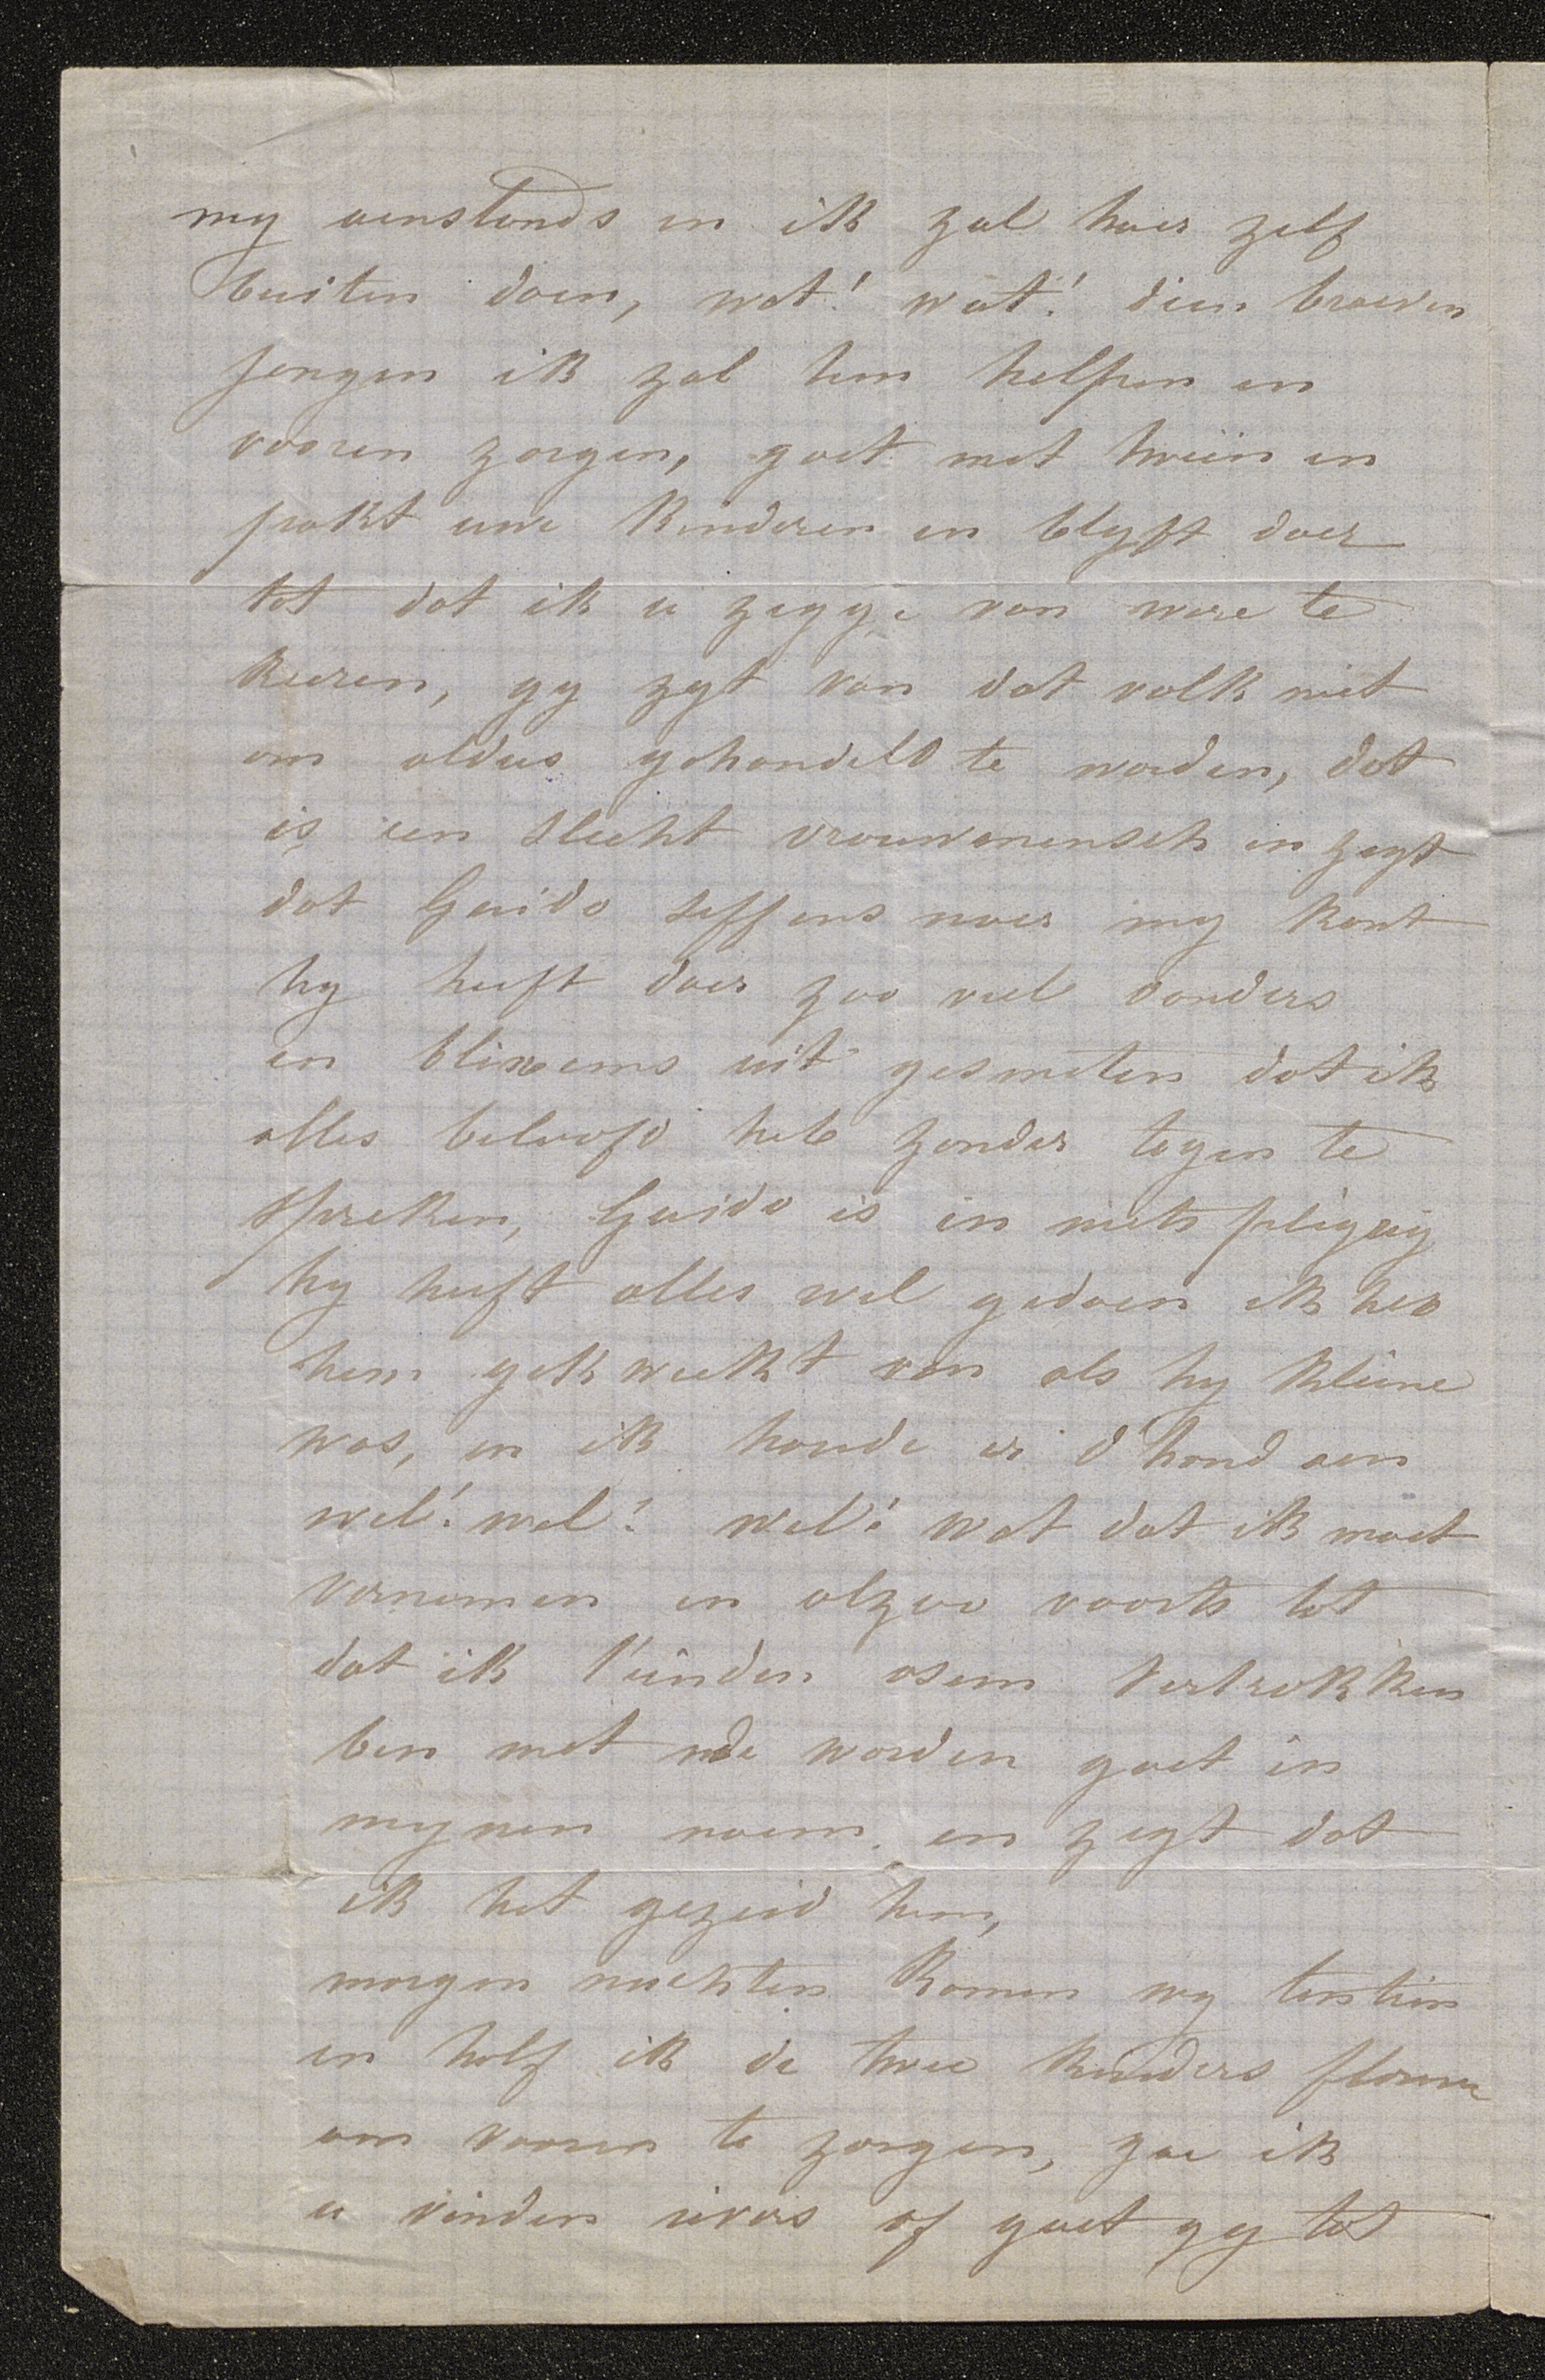 my aenstonds en ik zal haer zelf
buiten doen, wat! wat! dien braeven
jongen ik zal hem helpen en
vooren zorgen, gaet met trein en
pakt uwe kinderen en blyft daer
tot dat ik u zegge van were te
keeren, gy zyt van dat volk niet
om aldus gehandeld te worden, dat
is een slecht vrouwmensch en zegt
dat Guido seffens naer my komt
hy heeft daer zoo veel donders
en blixems uit gesmeten dat ik
alles beloofd heb zonder tegen te
spreken, Guido is in niets pligtig
hy heeft alles wel gedaen ik heb
hem gekweekt van als hy kleine
was, en ik houde er d'hand aen
wel! wel! wel! wat dat ik moet
vernemen en alzoo voorts tot
dat ik t'einden asem vertrokken
ben met de woorden gaet in
mynen naem en zegt dat
ik het gezeid hem,
morgen nuchten komen wy ten tien
en half ik de twee kinders
om vooren te zorgen, zoe ik
u vinden ievers of gaet gy tot